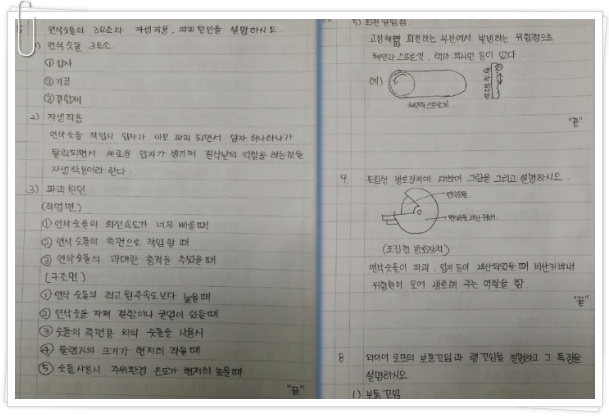 연삭숫돌의 3요소와 자생작용, 파괴원인을 설명하시오.
1) 연삭숫돌 3요소
① 입자
② 기공
③ 결합제
2) 자생작용
연삭숫돌 작업시 입자가 마모 파괴 되면서 입자 하나하나가
탈락되면서 새로운 입자가 생기며 절삭날의 역할을 하는것을
자생작용이라 한다.
3) 파괴원인
(작업면)
① 연삭숫돌의 회전속도가 너무 빠를때
② 연삭숫돌의 측면으로 작업할때
③ 연삭숫돌의 과대한 충격을 주었을때
(구조면)
① 연삭숫돌의 최고원주속도보다 높을때
② 연삭숫돌 자체 결함이나 균열이 있을때
③ 숫돌의 측면용 외의 숫돌을 사용시
④ 플랜지의 크기가 현저히 작을때
⑤ 숫돌사용시 주위환경 온도가 현저히 높을때
"끝"
5) 회전말림점
고정해 회전하는 부분에서 발생하는 위험점으로
체인과 스프로킷, 랙과 피니언 등이 있다
(예)
체인과스프로킷
"끝"
9 포집형 방호장치에 대하여 그림을 그리고 설명하시오.
연삭숫돌
(포집형 방호장치)
연삭숫돌이 파괴, 입자등이 비산되었을때 비산커버내
위험원이 모여 방호해 주는 역할을 함.
"끝"
8 와이어 로프의 보통꼬임과 랭꼬임을 설명하고 그 특징을
설명하시오.
1) 보통꼬임